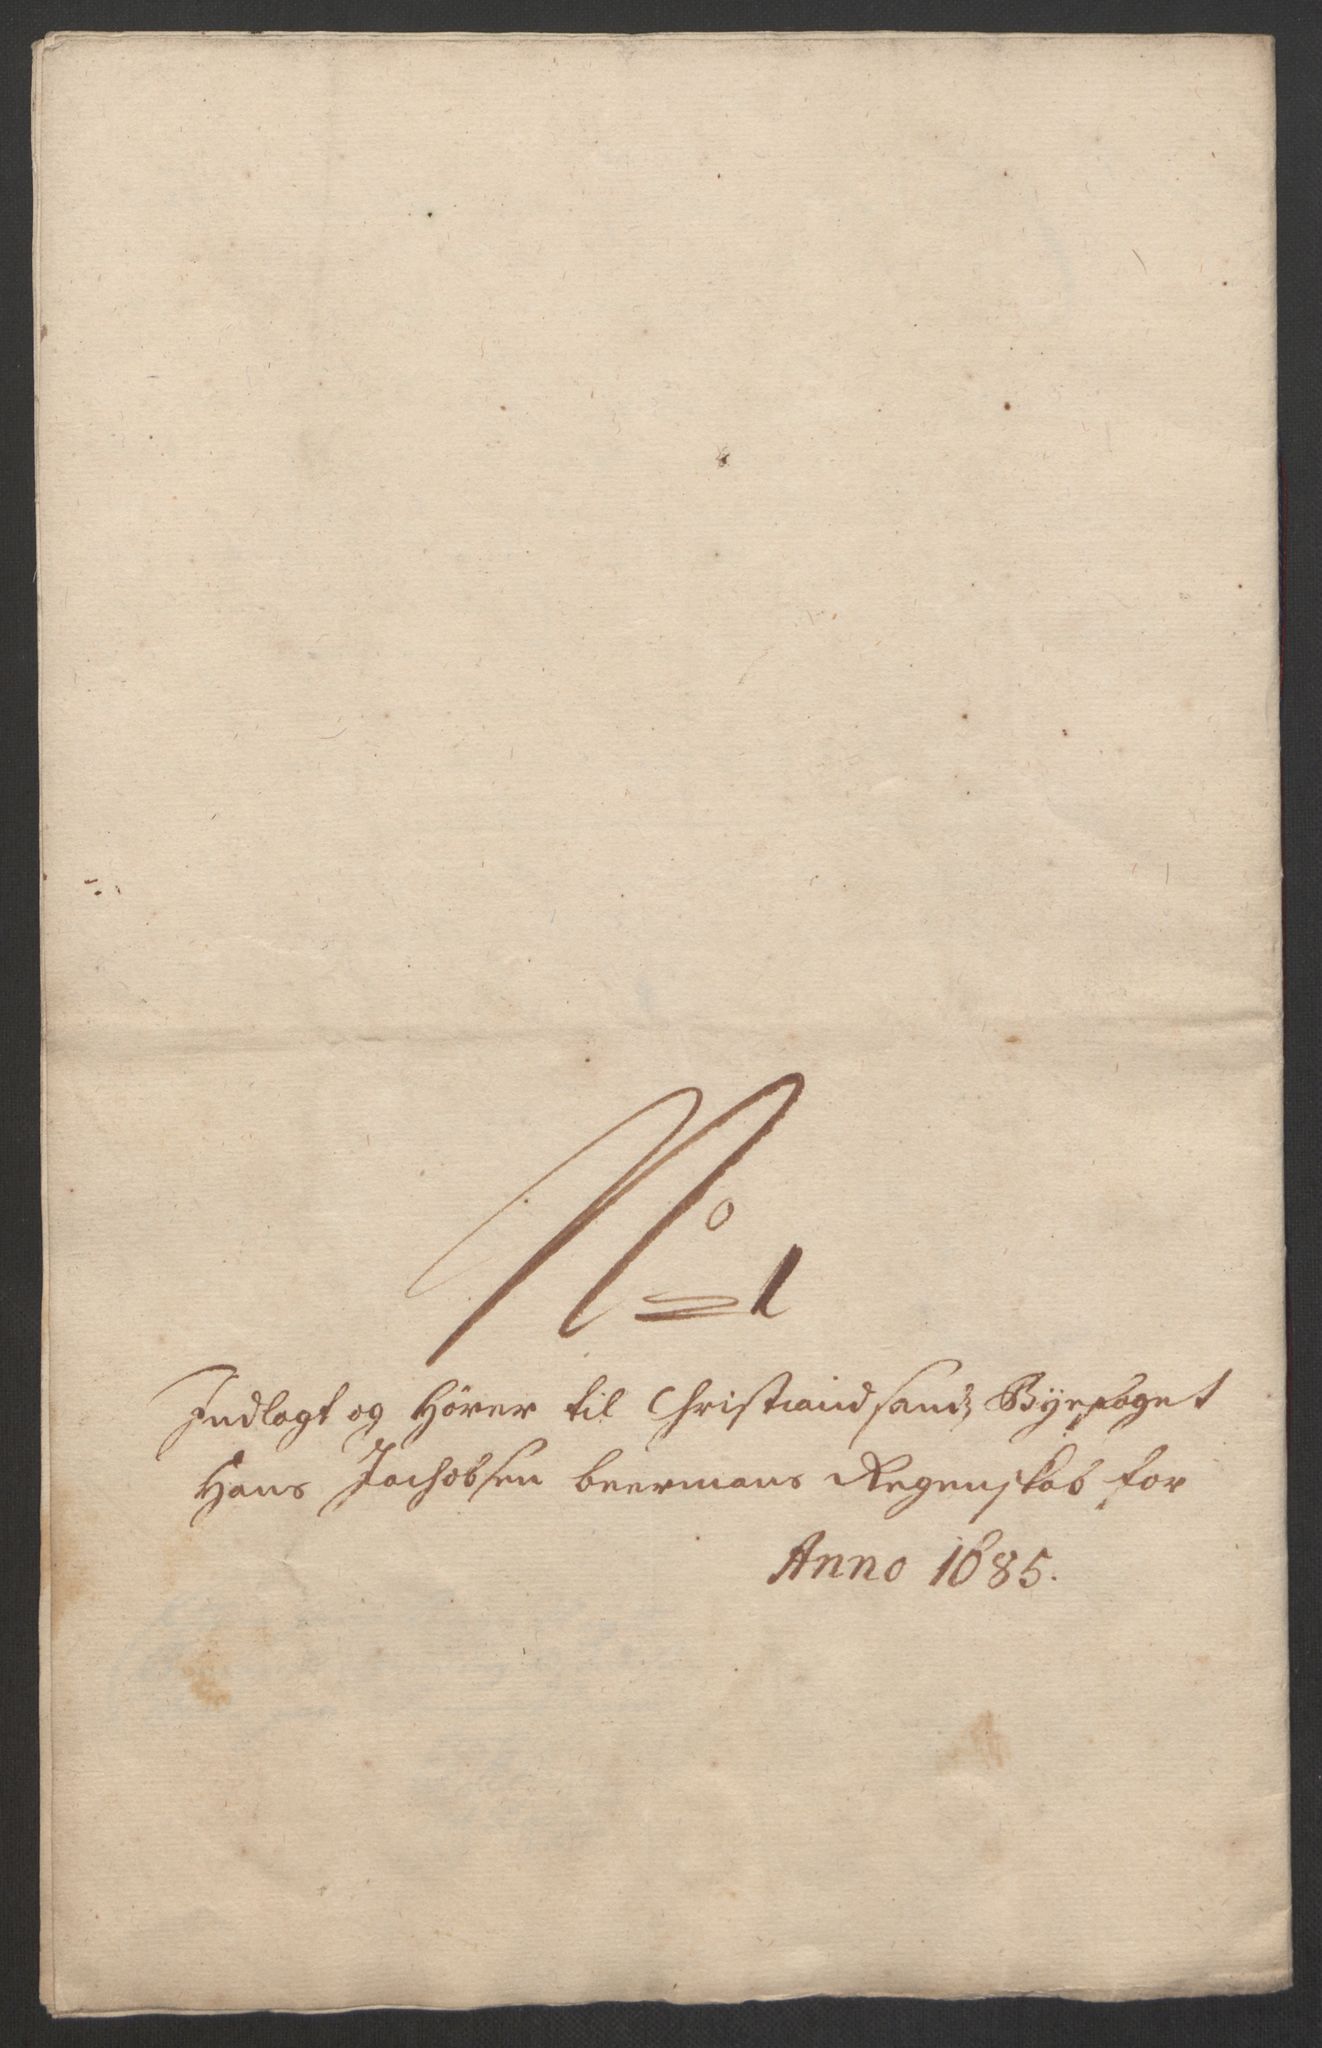 No 1
Indlagt og Hörer til Christiandsandz Byefoget
Hans Jachobsen beermans Regenskab for
Anno 1685.